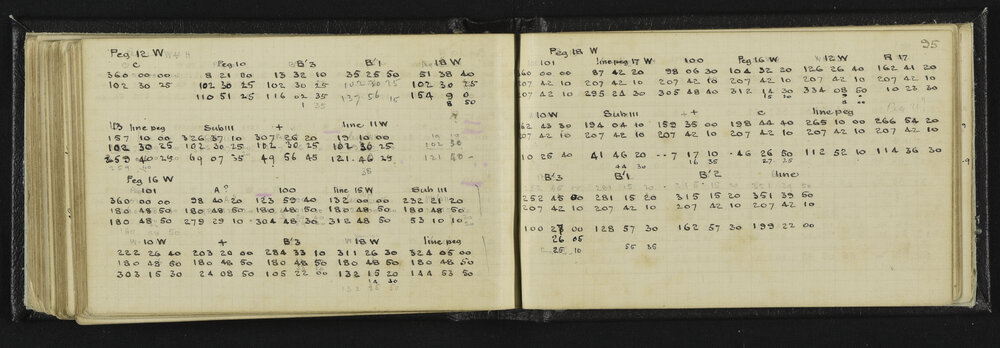 Peg 12 W
C Peg 10 B'3 B'1 18 W
360 00 00 8 21 00 13 32 10 35 25 50 51 38 40
102 30 25 102 30 25 102 30 25 102 30 25 102 30 25
110 51 25 116 02 35 137 56 15 154 9 0
1 35 8 50
113 line peg Sub 111 + line 11 W
157 10 00 326 37 10 307 26 20 19 10 00
102 30 25 102 30 25 102 30 25 102 30 25
259 40 25 69 07 35 49 56 45 121 46 25
35
Peg 16 W
101 A? 100 line 15 W Sub 111
360 00 00 98 40 20 123 59 40 132 00 00 232 21 20
180 48 50 180 48 50 180 48 50 180 48 50 180 48 50
180 48 50 279 29 10 304 48 30 312 48 50 53 10 10
10 W + B'3 18 W line peg
222 26 40 203 20 00 284 33 10 311 26 30 324 05 00
180 48 50 180 48 50 180 48 50 180 48 50 180 48 50
303 15 30 24 08 50 105 22 00 132 15 20 144 53 50
14 30
95
Peg 18 W
101 line peg 17 W 100 Peg 16 W 12 W R 17
360 00 00 87 42 20 98 06 30 104 32 20 126 26 40 162 41 20
207 42 10 207 42 10 207 42 10 207 42 10 207 42 10 207 42 10
207 42 10 295 24 30 305 48 40 312 14 30 334 08 50 10 23 30
15 10
10 W Sub 111 + + C line peg
162 43 30 194 04 10 159 35 00 198 44 40 265 10 00 266 54 20
207 42 10 207 42 10 207 42 10 207 42 10 207 42 10 207 42 10
10 25 40 41 46 20 7 17 10 46 26 50 112 52 10 114 36 30
44 30 16 35 27 25
B'3 B'1 B'2 line
252 45 00 281 15 20 315 15 20 351 39 50
207 42 10 207 42 10 207 42 10 207 42 10
100 27 00 128 57 30 162 57 30 199 22 00
26 05
25 10 55 35